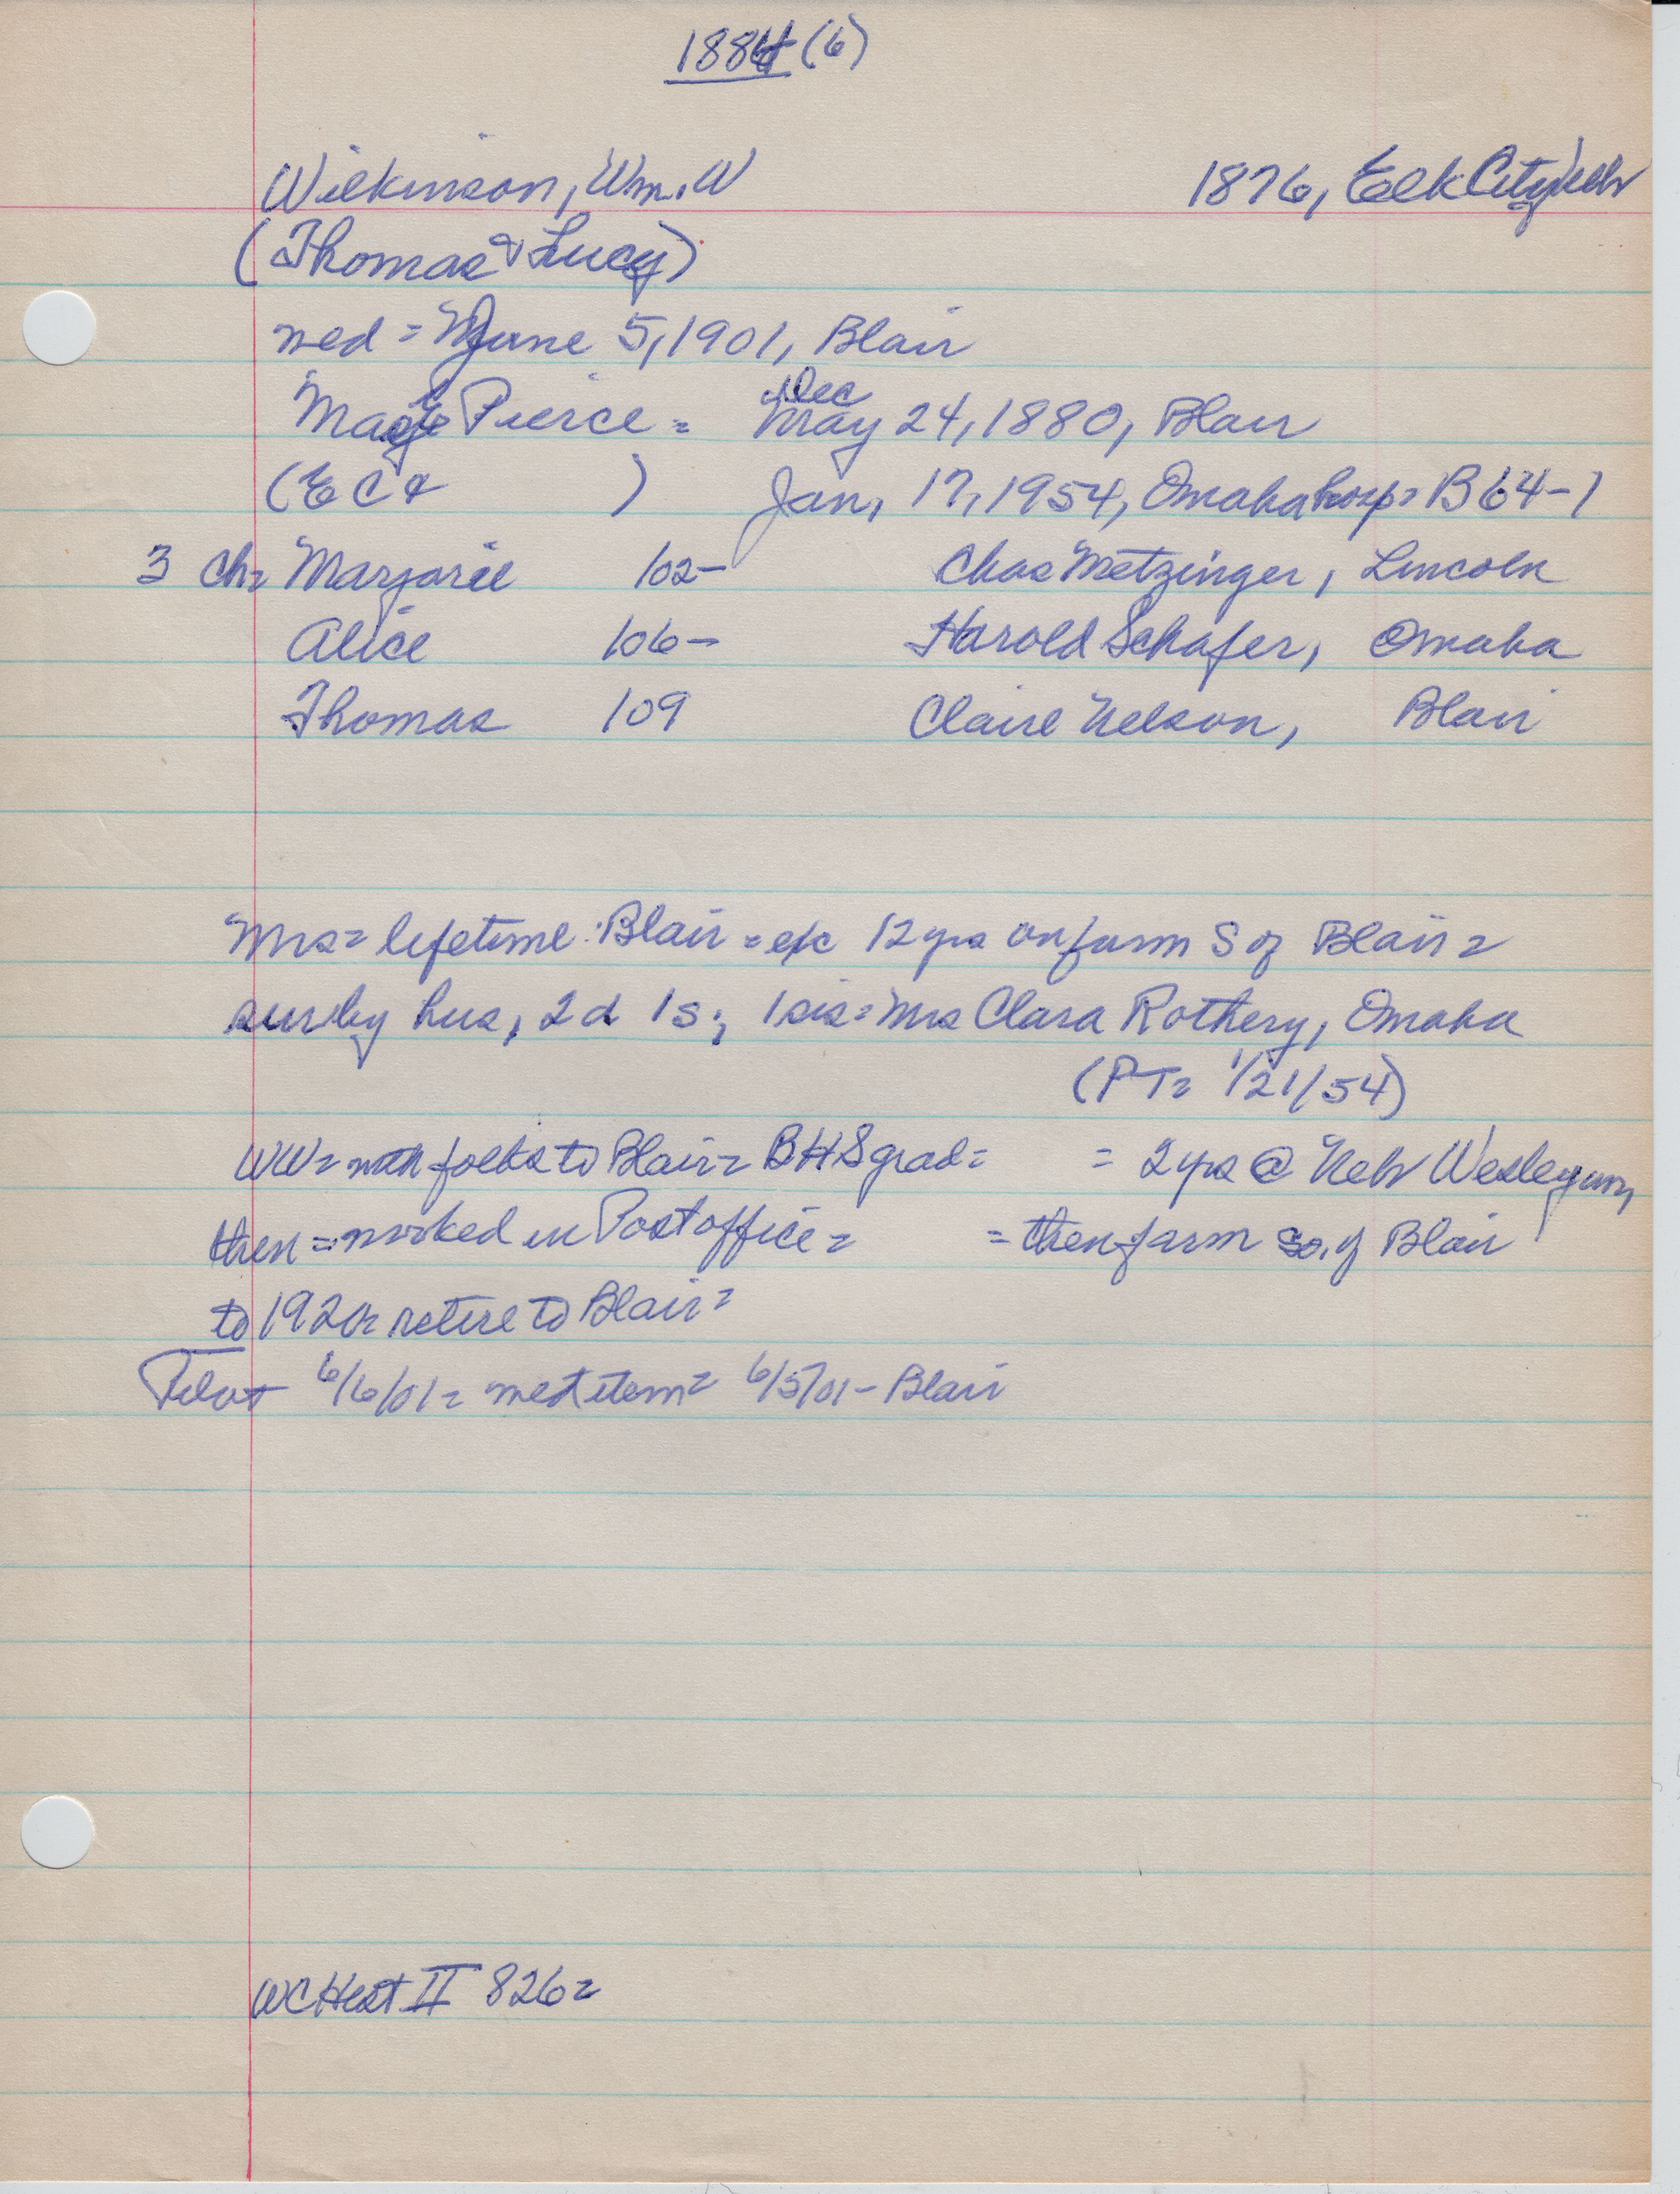 1884 (6)
Wilkinson, Wm. W 1876, Elk City, Nebr
(Thomas & Lucy)
med = June 5, 1901, Blair
Dec
Madge Pierce = May 24, 1880, Blair
(E C & ) Jan, 17, 1954, Omaha hosp = B 64-1
3 ch = Marjorie '02- Chas Metzinger, Lincoln
Alice '06- Harold Schafer, Omaha
Thomas '09 Claire Nelson, Blair
Mrs = lifetime Blair = exc 12 yrs on farm S of Blair =
sur by hus, 2 d 1 s; 1 sis = Mrs Clara Rothery, Omaha
(PT = 1/21/54)
WW = with folks to Blair = BHS grad = = 2 yrs @ Nebr Wesleyan,
then = worked in Postoffice = = then farm so. of Blair
to 1920 = retire to Blair =
Pilot 6/6/01 = med item = 6/5/01 - Blair
WC Hist II 826 =